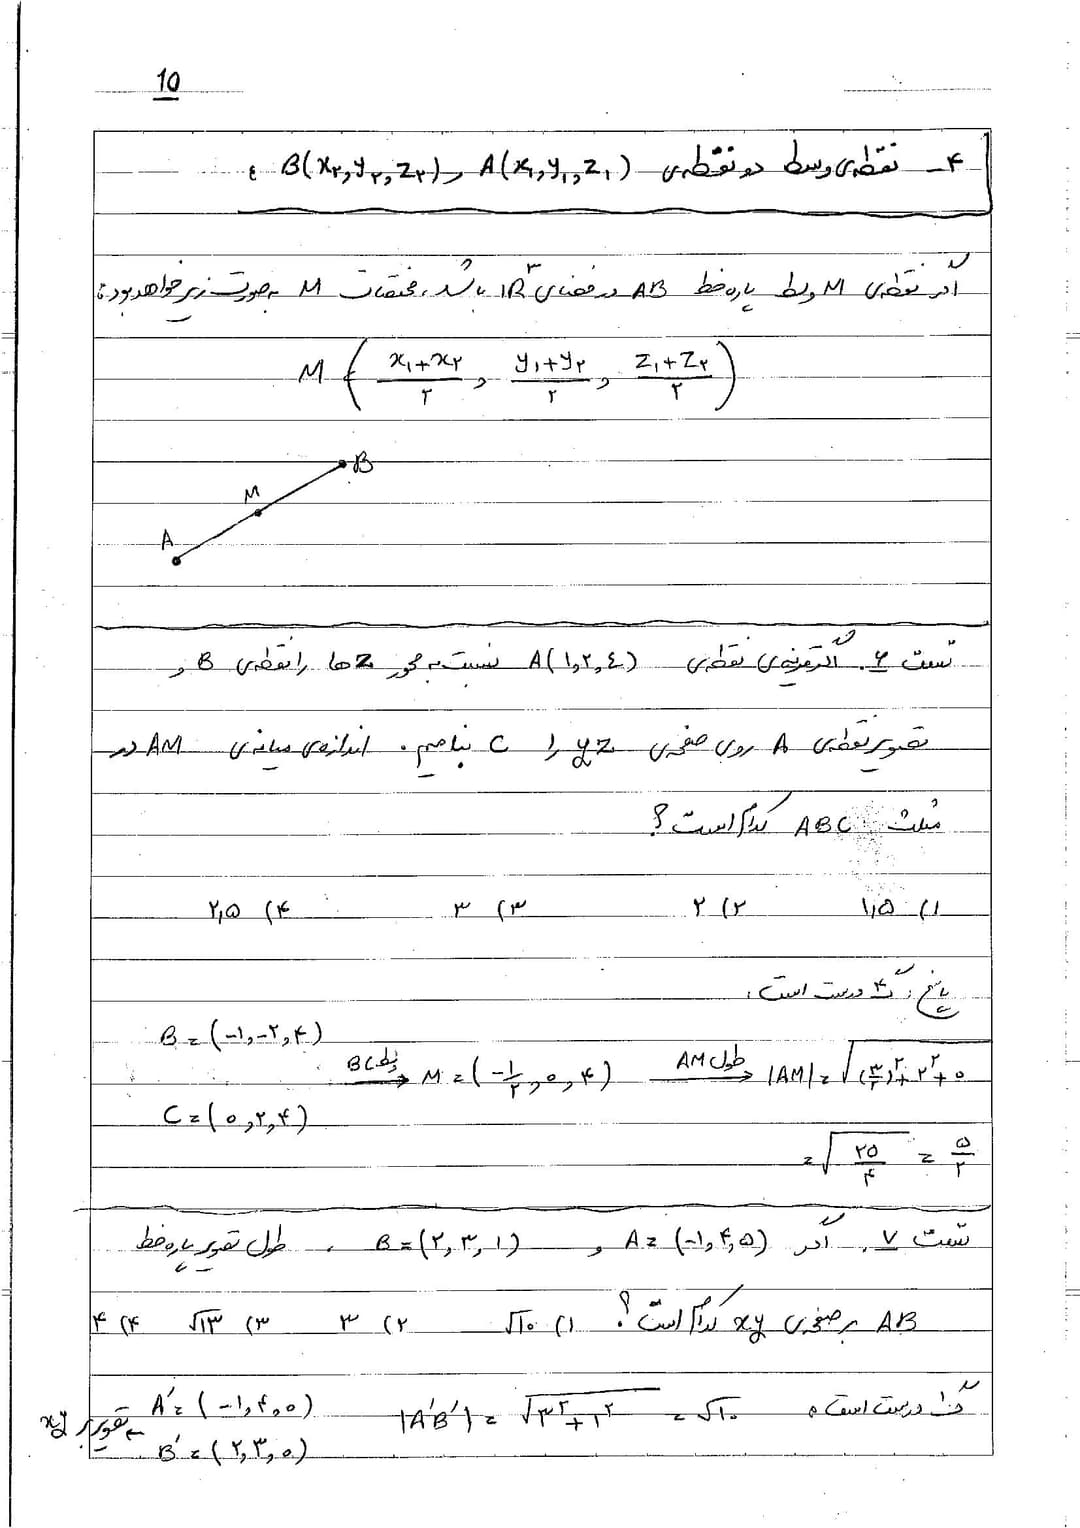 10
۴- نقطه‌ی وسط دو نقطه‌ی A(x₁,y₁,z₁) و B(x₂,y₂,z₂) :
اگر نقطه‌ی M وسط پاره خط AB در فضای IR³ باشد، مختصات M به صورت زیر خواهد بود:
M ( (x₁+x₂)/۲ , (y₁+y₂)/۲ , (z₁+z₂)/۲ )
B
M
A
تست ۶. اگر قرینه‌ی نقطه‌ی A(۱,۲,٤) نسبت به محور z ها را نقطه‌ی B و
تصویر نقطه‌ی A روی صفحه‌ی yz را C بنامیم. اندازه‌ی میانه‌ی AM در
مثلث ABC کدام است؟
۱) ۱,۵ ۲) ۲ ۳) ۳ ۴) ۲,۵
پاسخ: گ ۴ درست است.
B=(-۱,-۲,۴)
C=(۰,۲,۴)
وسط BC → M=(-۱/۲,۰,۴) طول AM → |AM|=√((۳/۲)²+۲²+۰
=√(۲۵/۴) = ۵/۲
تست ۷. اگر A=(-۱,۴,۵) و B=(۲,۳,۱) ، طول تصویر پاره خط
AB بر صفحه‌ی xy کدام است؟ ۱) √۱۰ ۲) ۳ ۳) √۱۳ ۴) ۴
گ ۱ درست است.
|A'B'| = √(۳²+۱²) = √۱۰
A'=(-۱,۴,۰)
B'=(۲,۳,۰)
تصویر بر xy